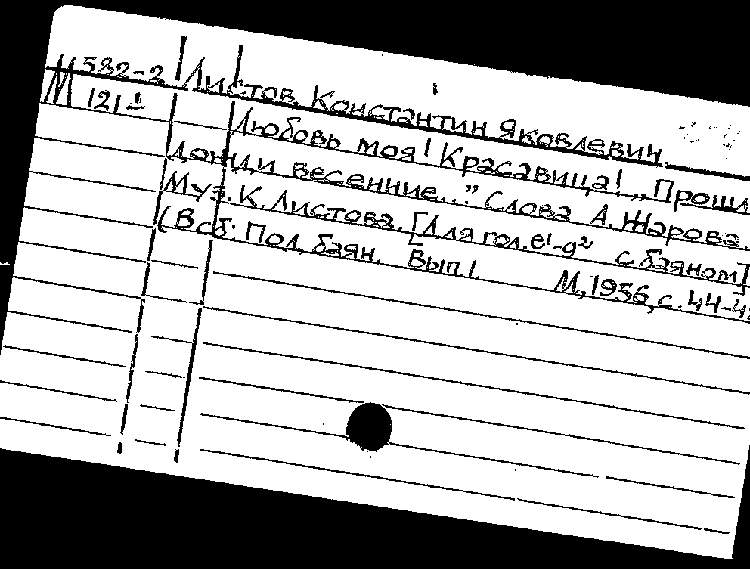 М 582-2 Листов Константин Яковлевич.
М 121-1
Любовь моя! Красавица! „Прошли
дожди весенние..." Слова А. Жарова.
Муз. К. Листова. [Для гол. e¹-g² с баяном]
(В сб: Пол. баян. Вып 1. М, 1956, с. 44-4